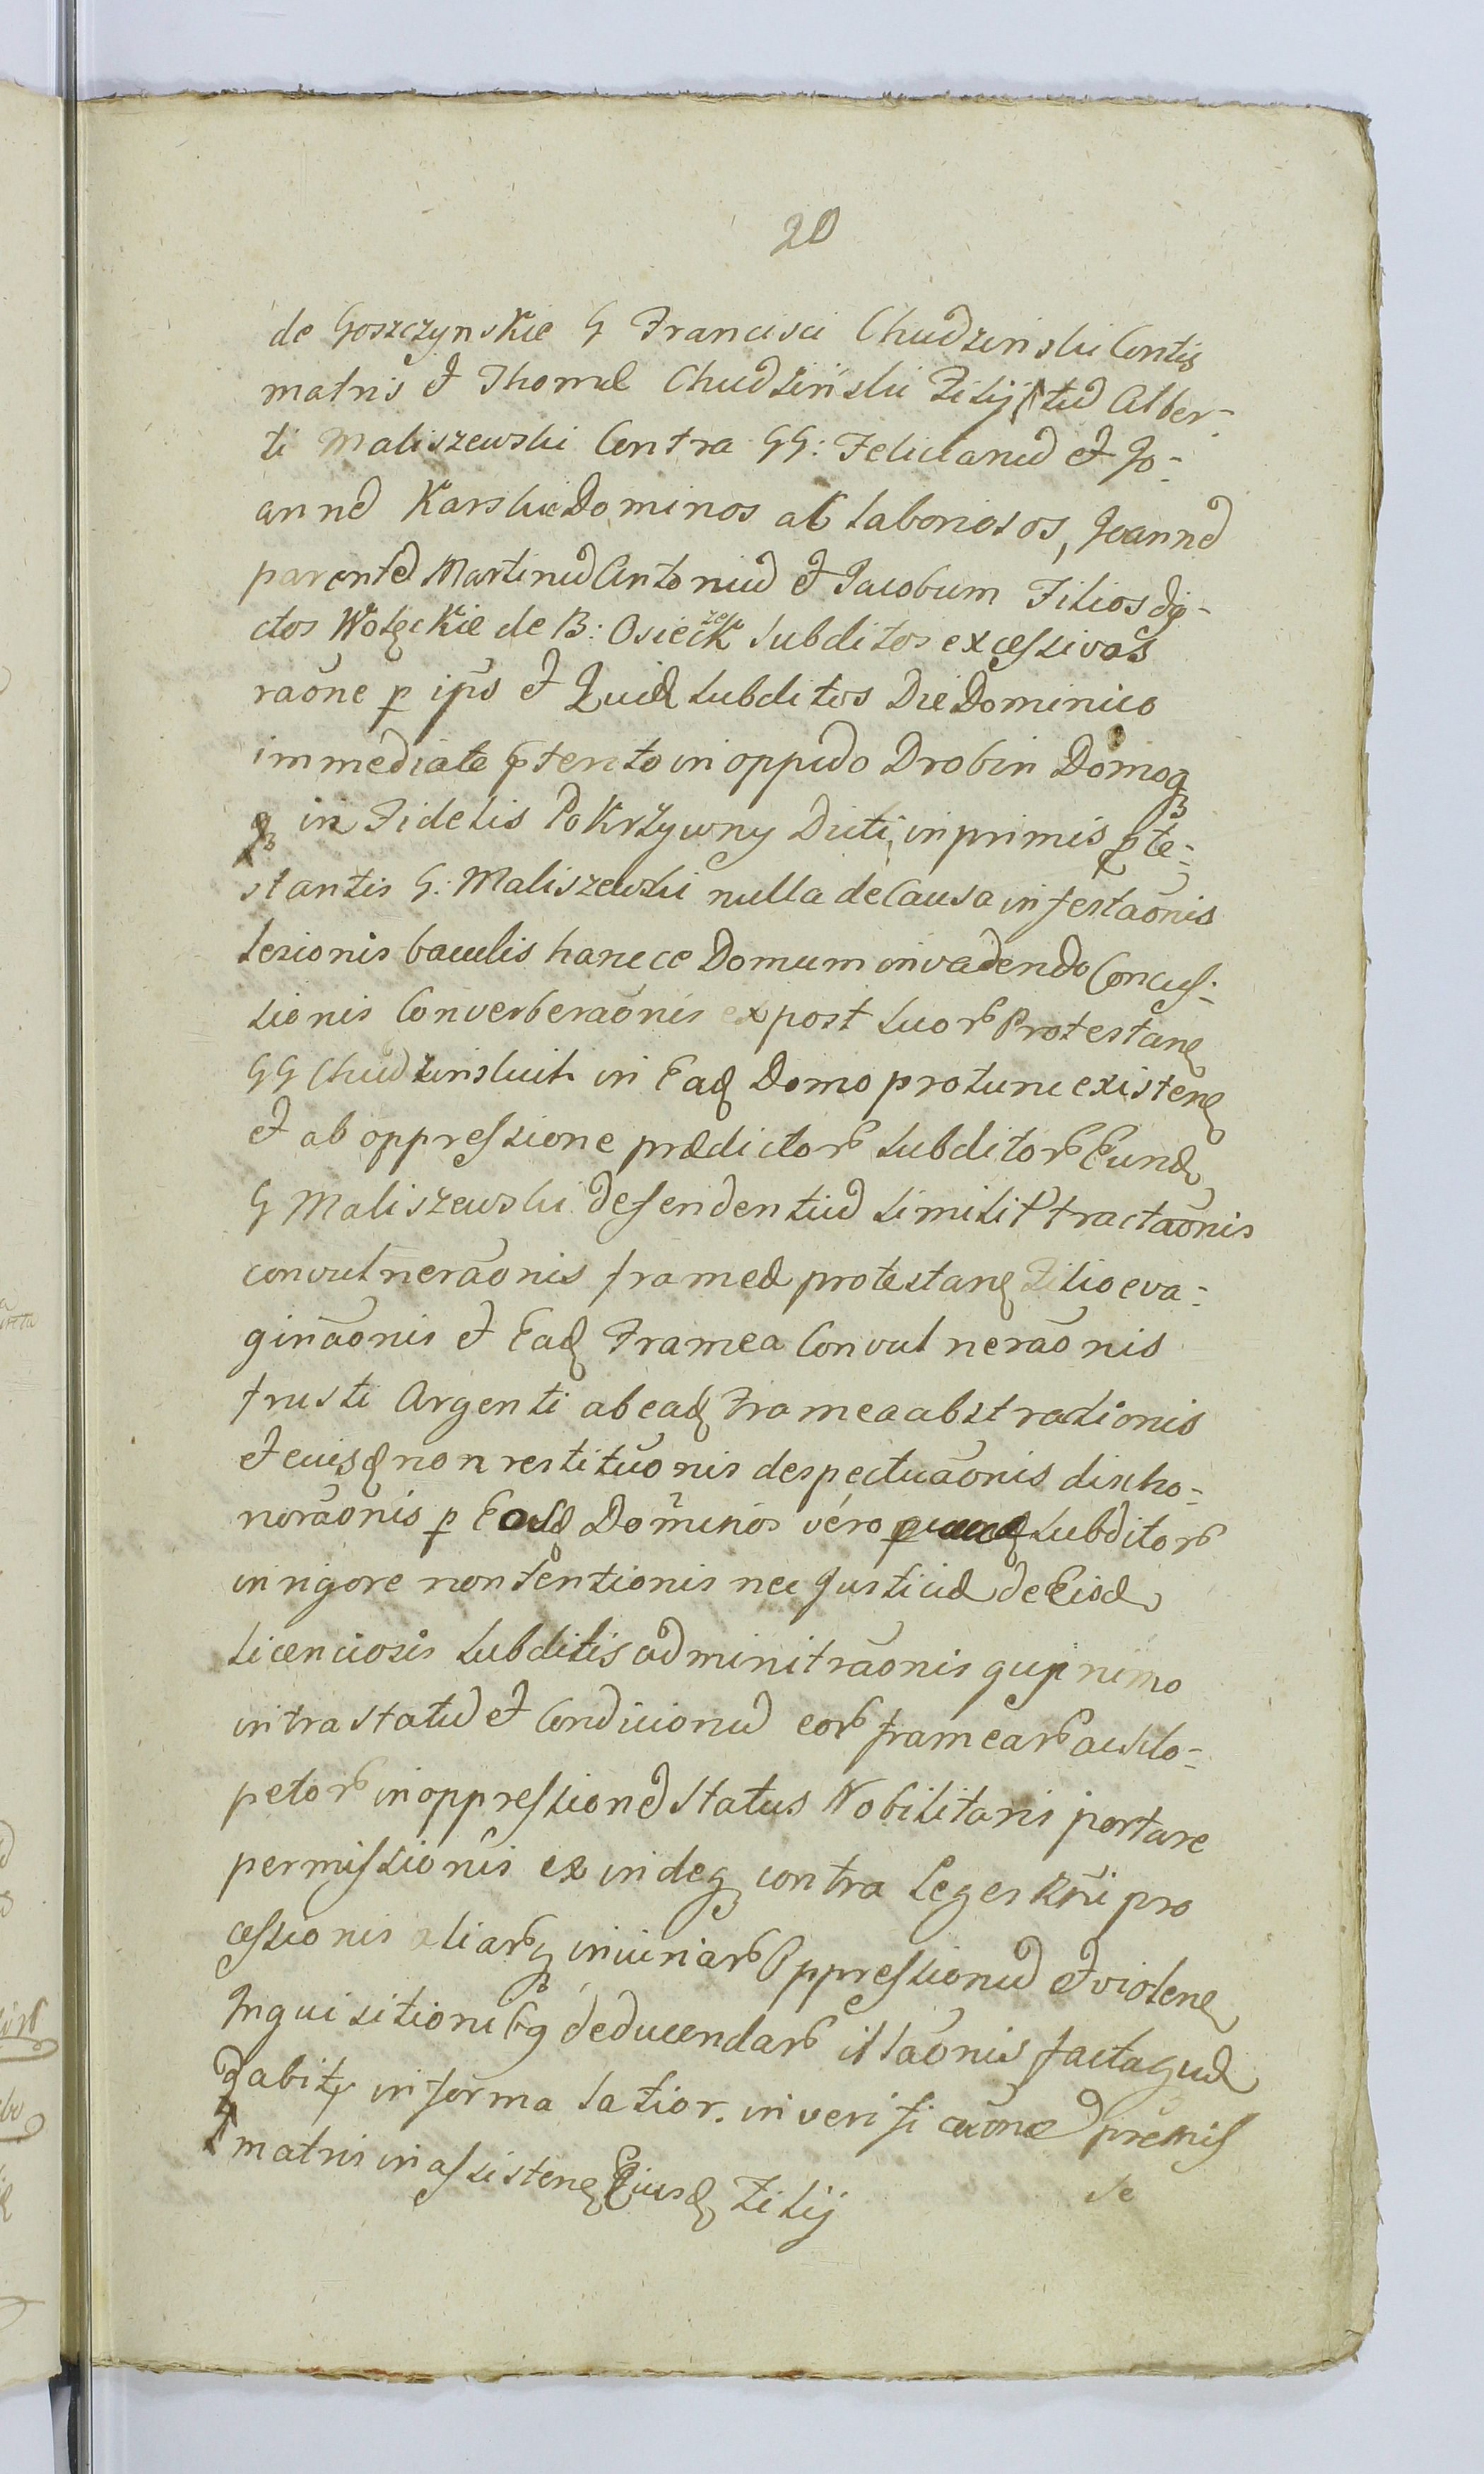 20
de Goszczynskie G Francisci Chudzinski Contis
matris et Thomæ Chudzinski Filij tum Alber-
ti Maliszewski Contra GG: Felicianum et Jo-
annem Karskie Dominos ac Laboriosos, Joannem
parentem Martinum Antonium et Jacobum Filios di-
ctos Wołęckie de B: Osieck subditos excessivos
raõne p ipõs et quid subditos Die Dominico
immediate pterito in oppido Drobin Domoq
in Fidelis Pokrzywny Dicti, inprimis pte-
stantis G: Maliszewski nulla de Causa infestaõnis
lesionis baculis hancce Domum invadendo Concus-
sionis Converberaõnis ex post suor Protestan
GG Chudzinskich in Ead Domo protunc existen
et ab oppressione prædictor subditor Eund
G Maliszewski defendentium similit tractaõnis
convulneraõnis frameæ protestan Filio eva-
ginaõnis et Ead Framea Convulneraõnis
frusti Argenti ab ead Framea abstractionis
et eiusd non restituõnis despectuaõnis disho-
noraõnis p Eosd Dominos vero subditor
in rigore non tentionis nec Justiciæ de Eisd
licenciosis subditis adminitraõnis quinimo
intra statum et Condicionum eor framear ac sclo-
petor in oppressionem status Nobilitaris portare
permissionis ex indeq contra Leges Rni pro
cessionis aliarq iniuriar Oppressionum et violen
Inquisitionibq deducendar illaõnis factaqud
dabit in forma latior. in verificaõne premis
matris in assisten Eiusd Filij
se